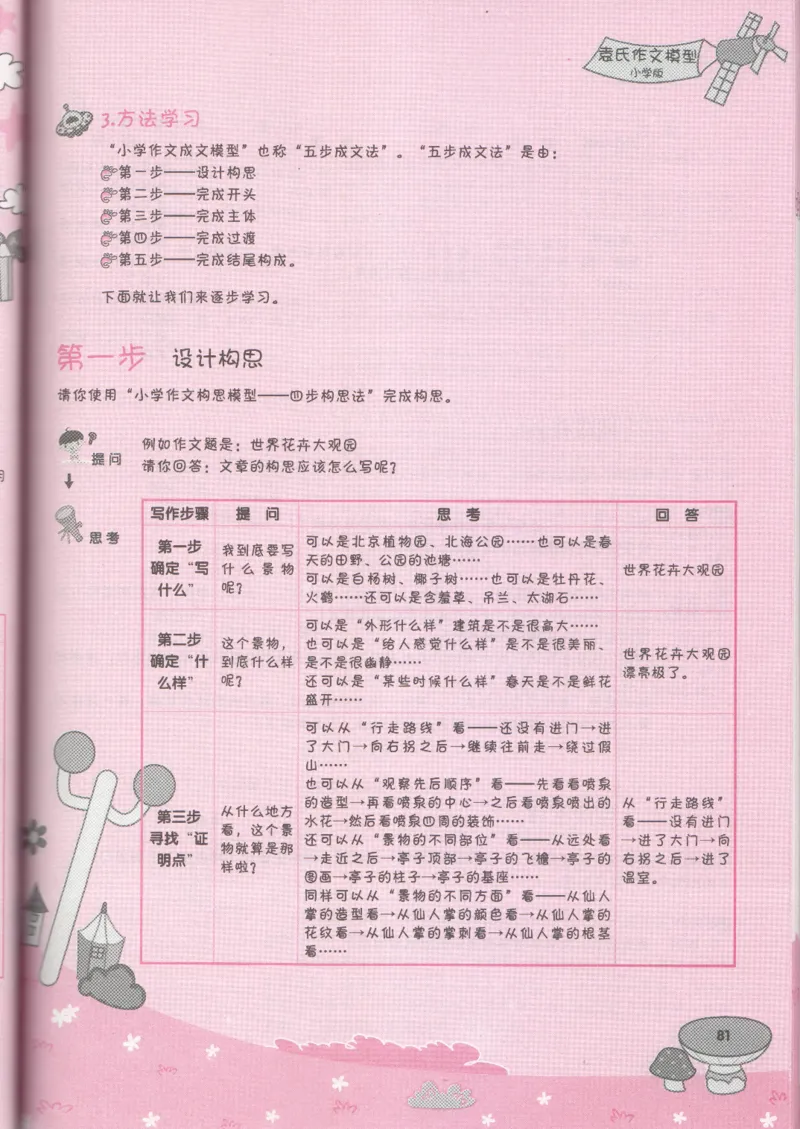 袁氏作文模型
小学版
3.方法学习
“小学作文成文模型”也称“五步成文法”。“五步成文法”是由：
第一步——设计构思
第二步——完成开头
第三步——完成主体
第四步——完成过渡
第五步——完成结尾构成。
下面就让我们来逐步学习。
第一步 设计构思
请你使用“小学作文构思模型——四步构思法”完成构思。
提问
例如作文题是：世界花卉大观园
请你回答：文章的构思应该怎么写呢？
思考
写作步骤 提 问 思 考 回 答
第一步
确定“写
什么”
我到底要写
什么景物
呢？
可以是北京植物园、北海公园……也可以是春
天的田野、公园的池塘……
可以是白杨树、椰子树……也可以是牡丹花、
火鹤……还可以是含羞草、吊兰、太湖石……
世界花卉大观园
第二步
确定“什
么样”
这个景物，
到底什么样
呢？
可以是“外形什么样”建筑是不是很高大……
也可以是“给人感觉什么样”是不是很美丽、
是不是很幽静……
还可以是“某些时候什么样”春天是不是鲜花
盛开……
世界花卉大观园
漂亮极了。
第三步
寻找“证
明点”
从什么地方
看，这个景
物就算是那
样啦？
可以从“行走路线”看——还没有进门→进
了大门→向右拐之后→继续往前走→绕过假
山……
也可以从“观察先后顺序”看——先看看喷泉
的造型→再看喷泉的中心→之后看喷泉喷出的
水花→然后看喷泉四周的装饰……
还可以从“景物的不同部位”看——从远处看
→走近之后→亭子顶部→亭子的飞檐→亭子的
图画→亭子的柱子→亭子的基座……
同样可以从“景物的不同方面”看——从仙人
掌的造型看→从仙人掌的颜色看→从仙人掌的
花纹看→从仙人掌的掌刺看→从仙人掌的根茎
看……
从“行走路线”
看——没有进门
→进了大门→向
右拐之后→进了
温室。
81